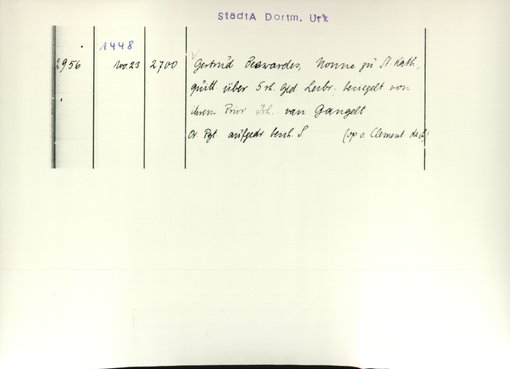 StadtA Dortm. Urk
1448
2956 Nov 23 2700 Gertrud Nonne zu St Kath,
quitt über 5 rh. Gld Leibr. besiegelt von
ihrem Prior Joh. van Gangelt
Or Pgt aufgedr besch. S (op s Clement